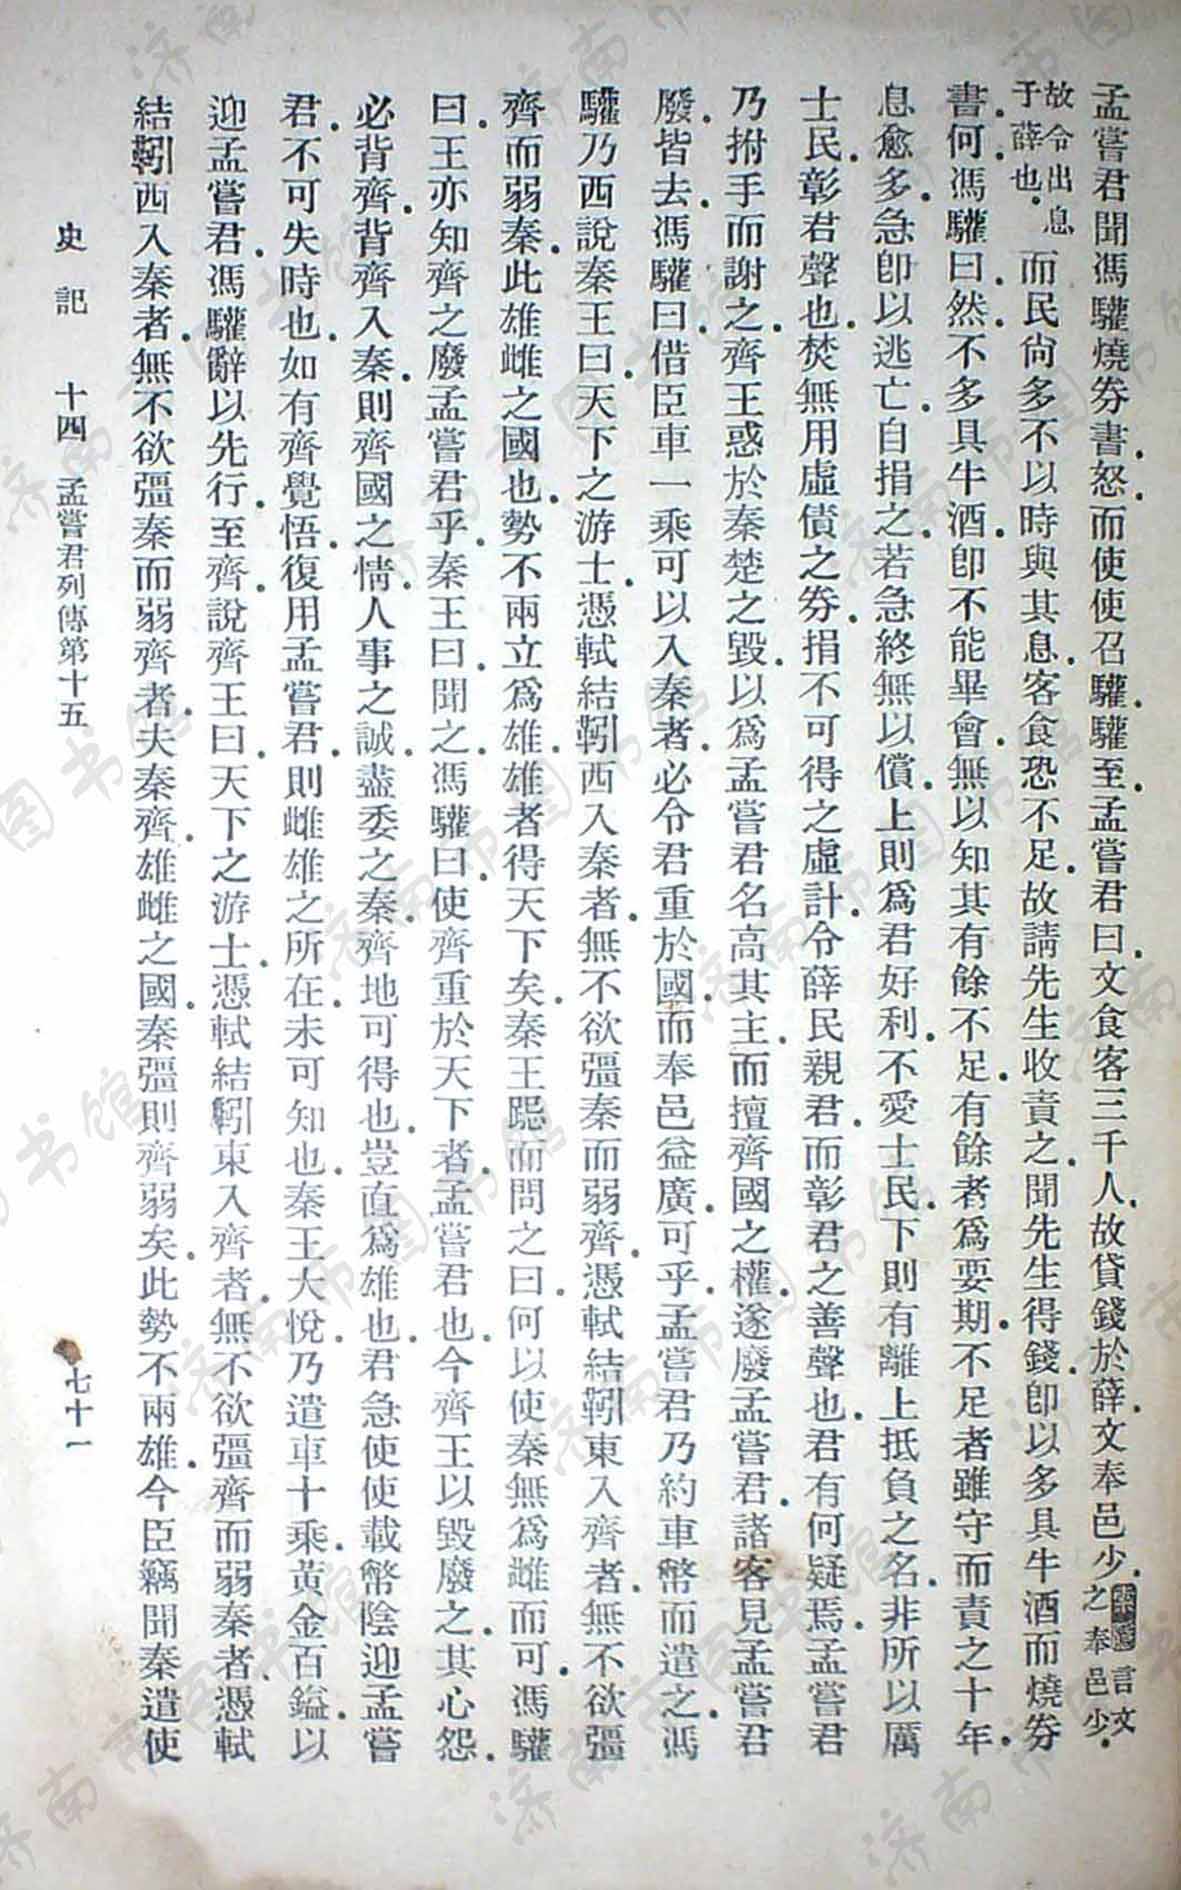 孟嘗君聞馮驩燒券書.怒.而使使召驩.驩至.孟嘗君曰.文食客三千人.故貸錢於薛.文奉邑少.索隱言文之奉邑少.
故令出息于薛也.而民尙多不以時與其息.客食恐不足.故請先生收責之.聞先生得錢.卽以多具牛酒而燒券
書.何.馮驩曰.然.不多具牛酒.卽不能畢會.無以知其有餘不足.有餘者爲要期.不足者雖守而責之十年.
息愈多.急卽以逃亡.自捐之.若急終無以償.上則爲君好利.不愛士民.下則有離上抵負之名.非所以厲
士民.彰君聲也.焚無用虛債之券.捐不可得之虛計.令薛民親君.而彰君之善聲也.君有何疑焉.孟嘗君
乃拊手而謝之.齊王惑於秦楚之毀.以爲孟嘗君名高其主.而擅齊國之權.遂廢孟嘗君.諸客見孟嘗君
廢.皆去.馮驩曰.借臣車一乘可以入秦者.必令君重於國.而奉邑益廣.可乎.孟嘗君乃約車幣而遣之.馮
驩乃西說秦王曰.天下之游士.憑軾結靷西入秦者.無不欲彊秦而弱齊.憑軾結靷東入齊者.無不欲彊
齊而弱秦.此雄雌之國也.勢不兩立爲雄.雄者得天下矣.秦王跽而問之曰.何以使秦無爲雌而可.馮驩
曰.王亦知齊之廢孟嘗君乎.秦王曰.聞之.馮驩曰.使齊重於天下者.孟嘗君也.今齊王以毀廢之.其心怨.
必背齊.背齊入秦.則齊國之情.人事之誠.盡委之秦.齊地可得也.豈直爲雄也.君急使使載幣陰迎孟嘗
君.不可失時也.如有齊覺悟.復用孟嘗君.則雌雄之所在.未可知也.秦王大悅.乃遣車十乘.黃金百鎰.以
迎孟嘗君.馮驩辭以先行.至齊.說齊王曰.天下之游士.憑軾結靷東入齊者.無不欲彊齊而弱秦者.憑軾
結靷西入秦者.無不欲彊秦而弱齊者.夫秦齊.雄雌之國.秦彊則齊弱矣.此勢不兩雄.今臣竊聞秦遣使
史記 十四 孟嘗君列傳第十五 七十一
济南市图书馆